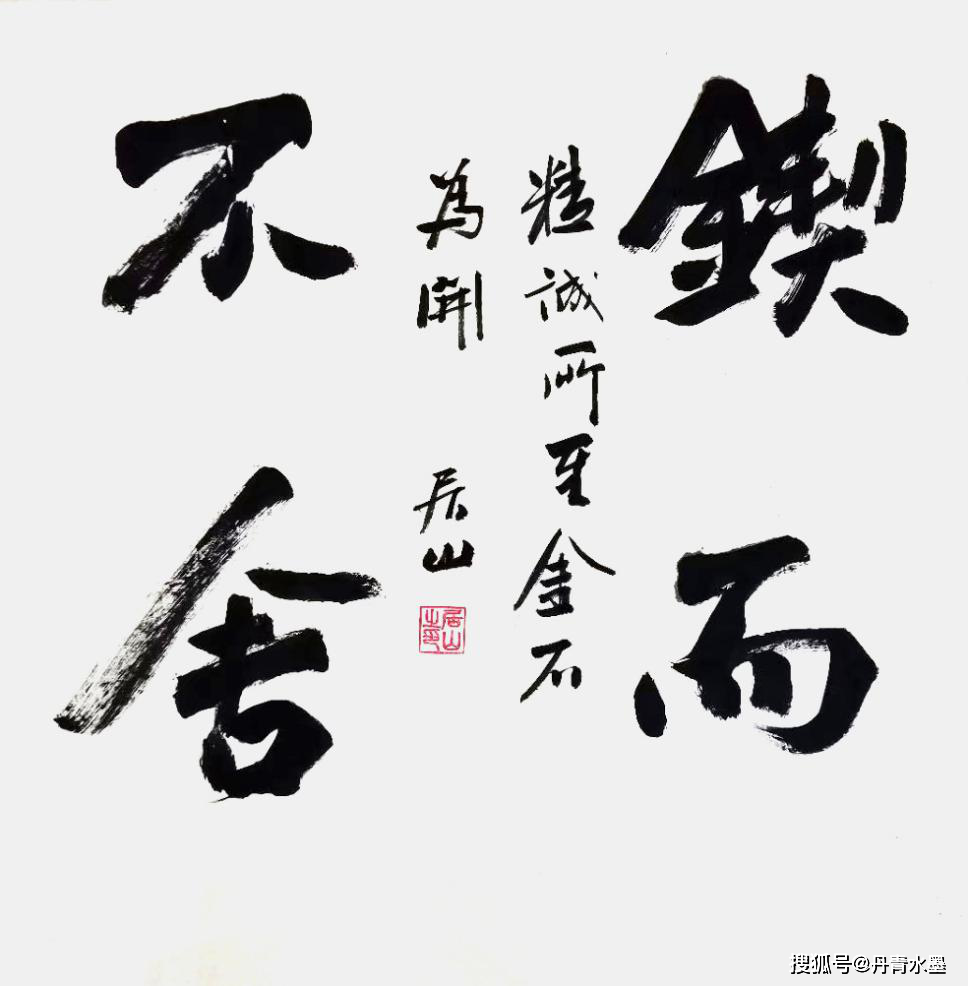 鍥而
不舍
精誠所至金石
為開
居山
居山之印
搜狐号@丹青水墨